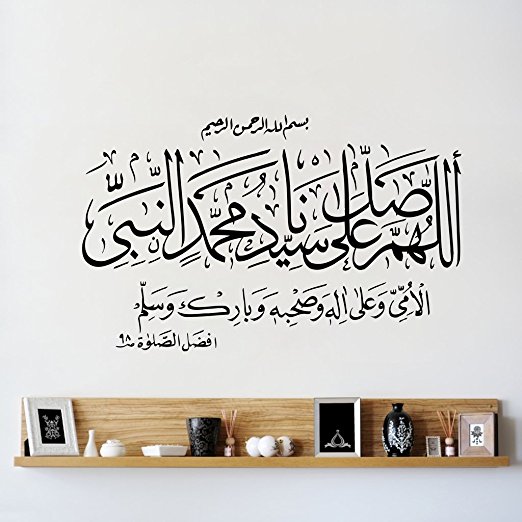 بسم الله الرحمن الرحيم
أللهم صل على سيدنا محمد النبي
الأمي وعلى اله وصحبه وبارك وسلم
افضل الصلوة ص ٩٨